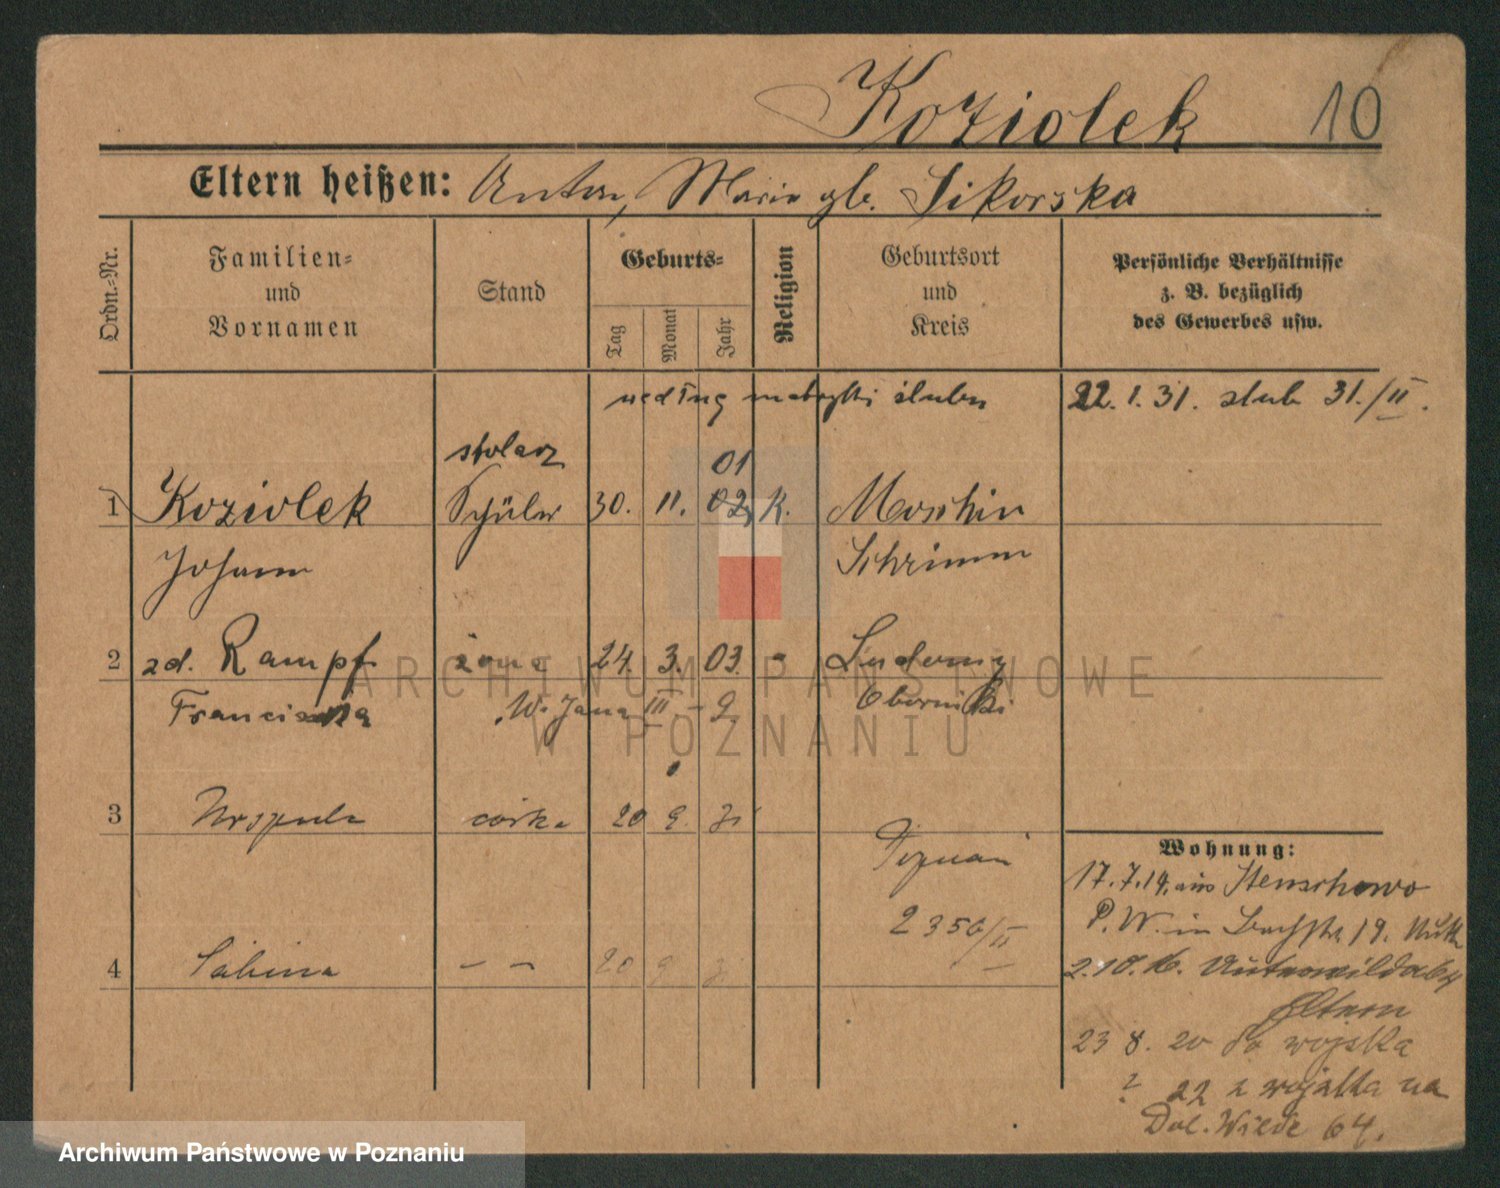 Koziolek 10
Eltern heißen: Anton, Maria gb. Sikorska
Ordn.-Nr.
Familien-
und
Vornamen
Stand
Geburts-
Tag
Monat
Jahr
Religion
Geburtsort
und
Kreis
Persönliche Verhältnisse
z. B. bezüglich
des Gewerbes usw.
według metryki ślubu 22.1.31. slub 31./II.
stolarz 01
1 Koziolek Schüler 30. 11. 02 K. Moschin
Johann Schrimm
2 zd. Rampf żona 24. 3. 03. Ludomy
Franciszka W. Jana III - 9 Oborniki
3 Urszula córka 20 9. 31
Poznań
2350/II
4 Sabina — — 20 9 31
Wohnung:
17.7.19. aus Stenschewo
P. W. in Bachstr. 19.
2.10.16. Unterwilda 64
Eltern
23 8. 20 do wojska
? 22 z wojska na
Dol. Wilde 64.
ARCHIWUM PAŃSTWOWE
W POZNANIU
Archiwum Państwowe w Poznaniu